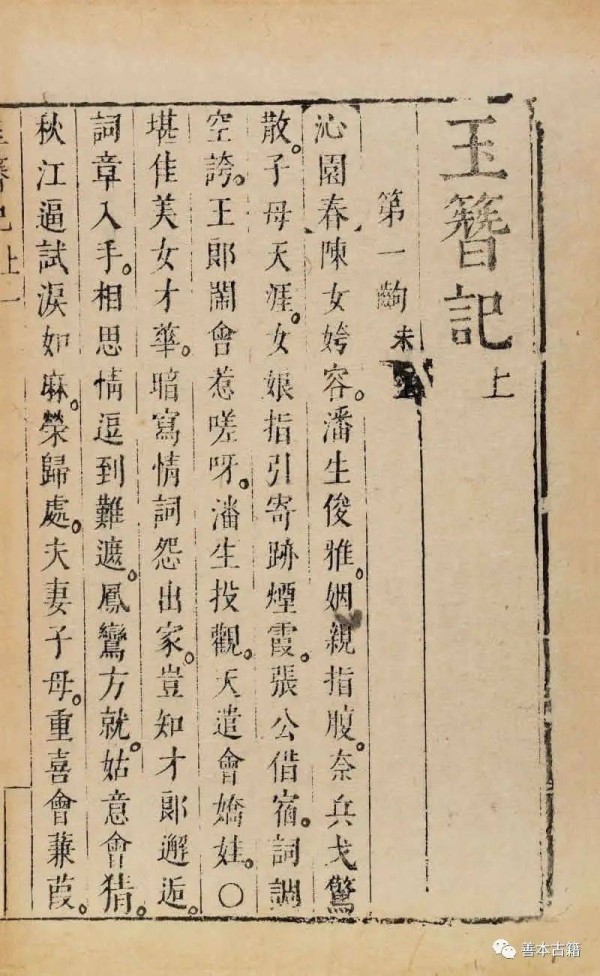 玉簪記 上
第一齣 末
沁園春陳女姱容。潘生俊雅。姻親指腹。奈兵戈驚
散。子母天涯。女娘指引寄跡煙霞。張公借宿。詞調
空誇。王郎鬧會惹嗟呀。潘生投觀。天遣會嬌娃。〇
堪佳美女才華。暗寫情詞怨出家。豈知才郎邂逅。
詞章入手。相思情逗到難遮。鳳鸞方就。姑意會猜。
秋江逼試淚如麻。榮歸處。夫妻子母。重喜會蒹葭。
玉簪記上 一
善本古籍